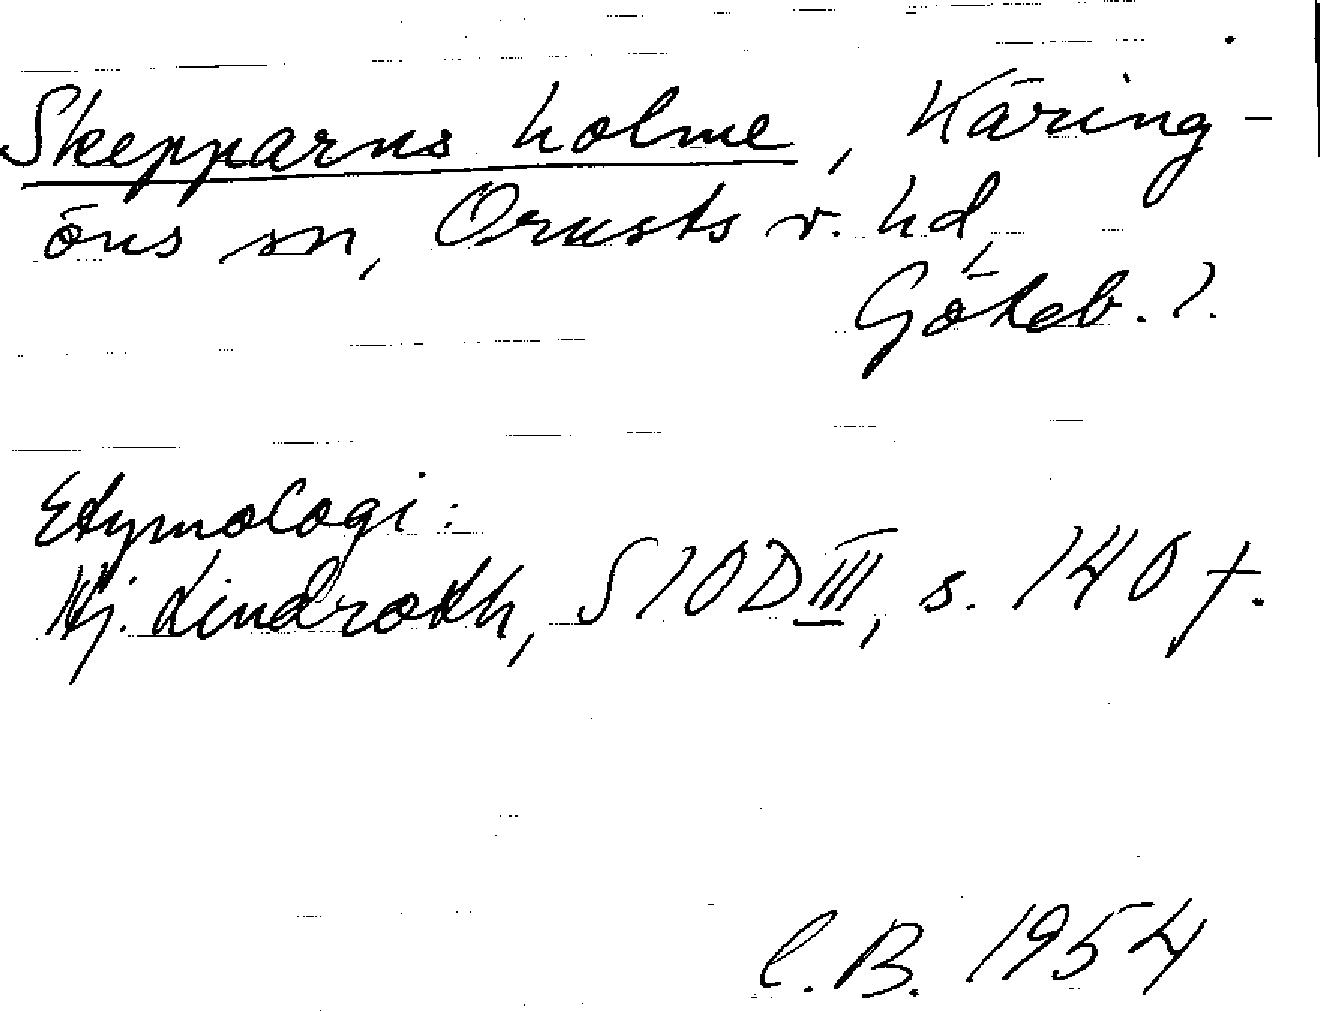 Skepparns holme, Käring-
öns sn, Orusts v. hd,
Göteb. l.
Etymologi:
Hj. Lindroth, SIOD III, s. 140 f.
C.B. 1954